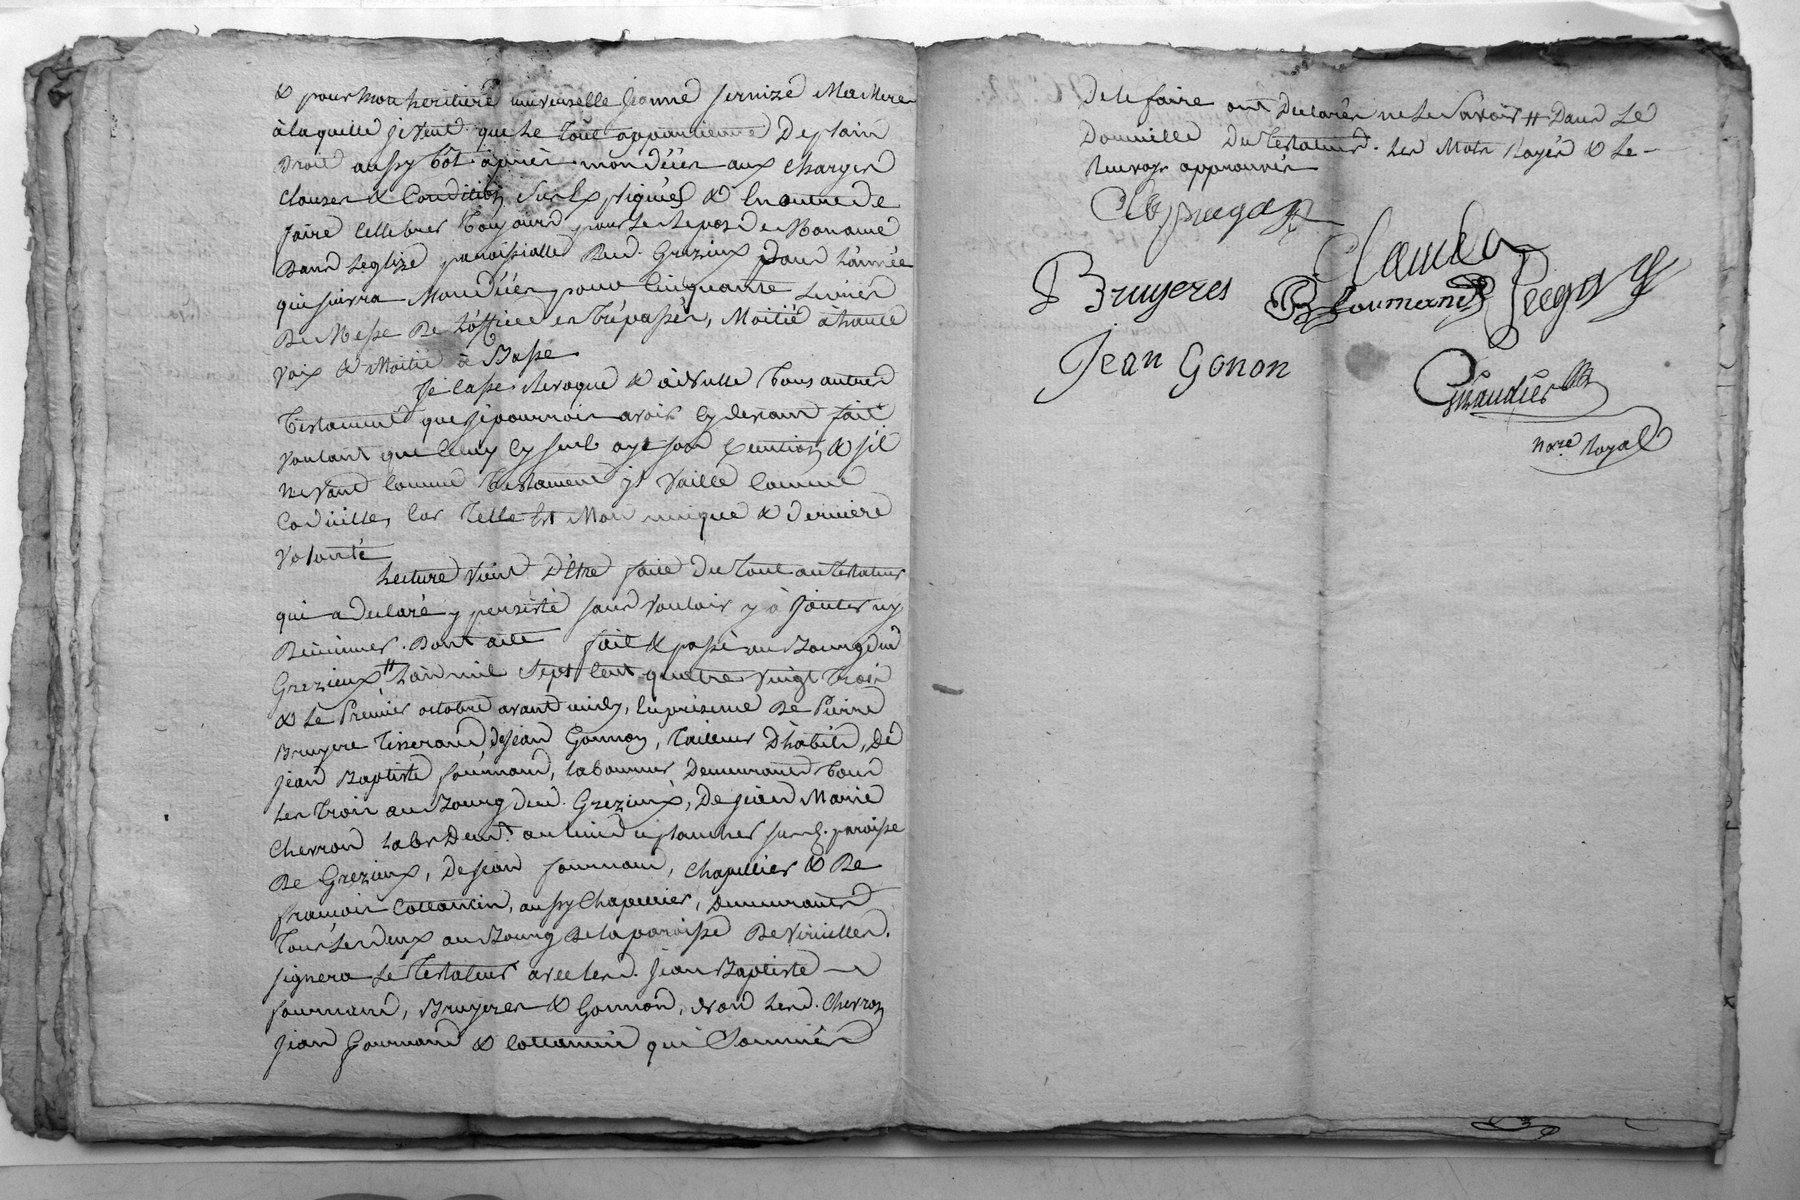 & pour mon heritiere universelle Jeanne Jernize Ma Mere
à laquelle je veut que le tout appartienne De plain
Droit aussy tôt apprès mon décès aux charges
clauses & Condition Sus Expliquées & En outre de
faire cellebrer toujours pour le repos de Mon ame
Dans L'eglize paroissialle Dud. Grezieux Dans L'année
qui suivra Mon décès pour Cinquante Livres
De Messe De L'office es trépassés, Moitié à haute
voix & Moitié à Basse
Je casse revoque & annulle tous autres
Testament que je pourrois avoir cy devant fait
voulant que celuy cy seul aye son Execution & s'il
ne vaut comme Testament qu'il vaille comme
Codicille, Car Telle Est Mon unique & derniere
volonté
Lecture vient D'être faite Du tout au Testateur
qui a declaré y persisté sans vouloir y ajouter ny
Diminuer. Dont acte fait & passé au Bourg dud
Grezieux # L'an mil sept cent quatre vingt trois
& Le Premier octobre avant midy, En presence De Pierre
Bruyere Tisserand, De Jean Gonnon, Tailleur D'habits, De
Jean Baptiste fournand, Laboureur Demeurants tous
Les trois au Bourg dud. Grezieux, De Jean Marie
Chevron Labr Deurt. au lieu du plancher susd. paroisse
De Grezieux, De Jean fournand, Chapellier & De
francois Cottancin, aussy Chapellier, Demeurants
tous Les deux au Bourg De la paroisse De Viricelles.
signera Le Testateur avec Lesd. Jean Baptiste
fournand, Bruyeres & Gonnon, & non Lesd. Chevron
Jean fournand & Cottancin qui Sommés
De le faire ont Declarés ne Le Savoir # Dans Le
Domicille Du Testateur. Les Mots Rayés & Le
Renvoy approuvés
Bruyeres
Claude
B fournand
Jean Gonon
Giraudier
Nore Royal